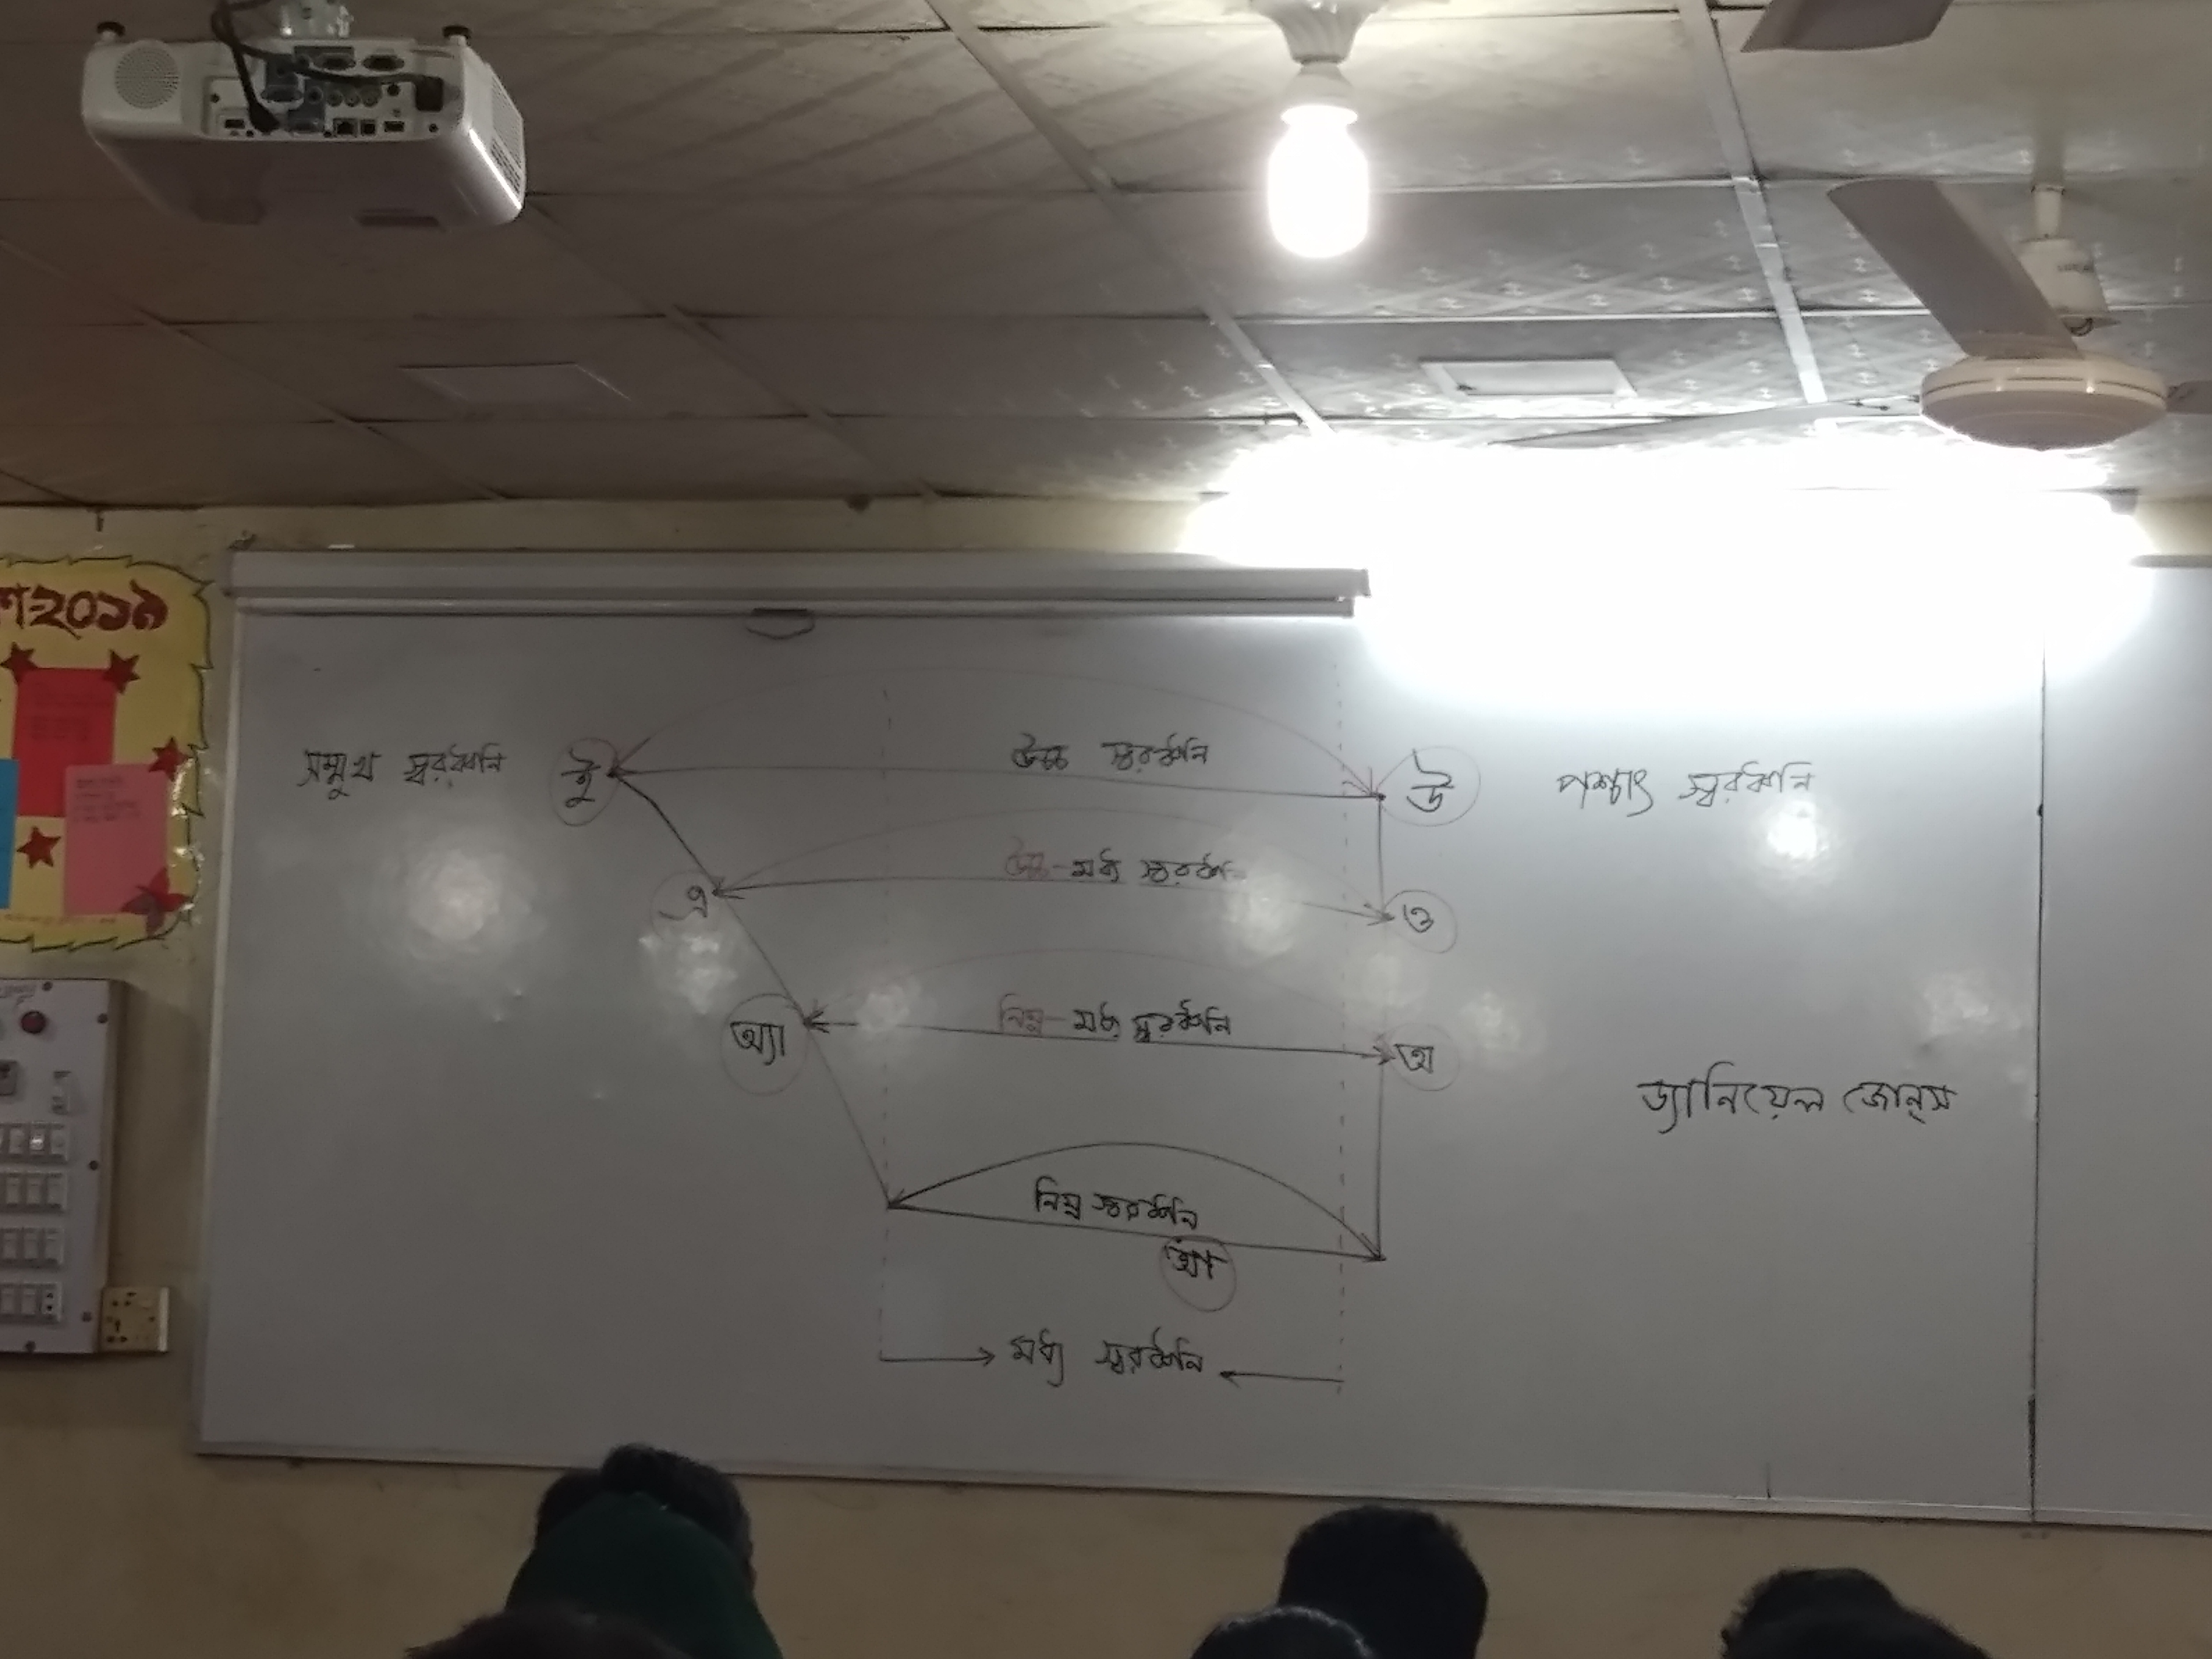 ২০১৯
সম্মুখ স্বরধ্বনি ই উচ্চ স্বরধ্বনি উ পশ্চাৎ স্বরধ্বনি
এ উচ্চ-মধ্য স্বরধ্বনি ও
অ্যা নিম্ন-মধ্য স্বরধ্বনি অ
ড্যানিয়েল জোন্স
নিম্ন স্বরধ্বনি
আ
মধ্য স্বরধ্বনি